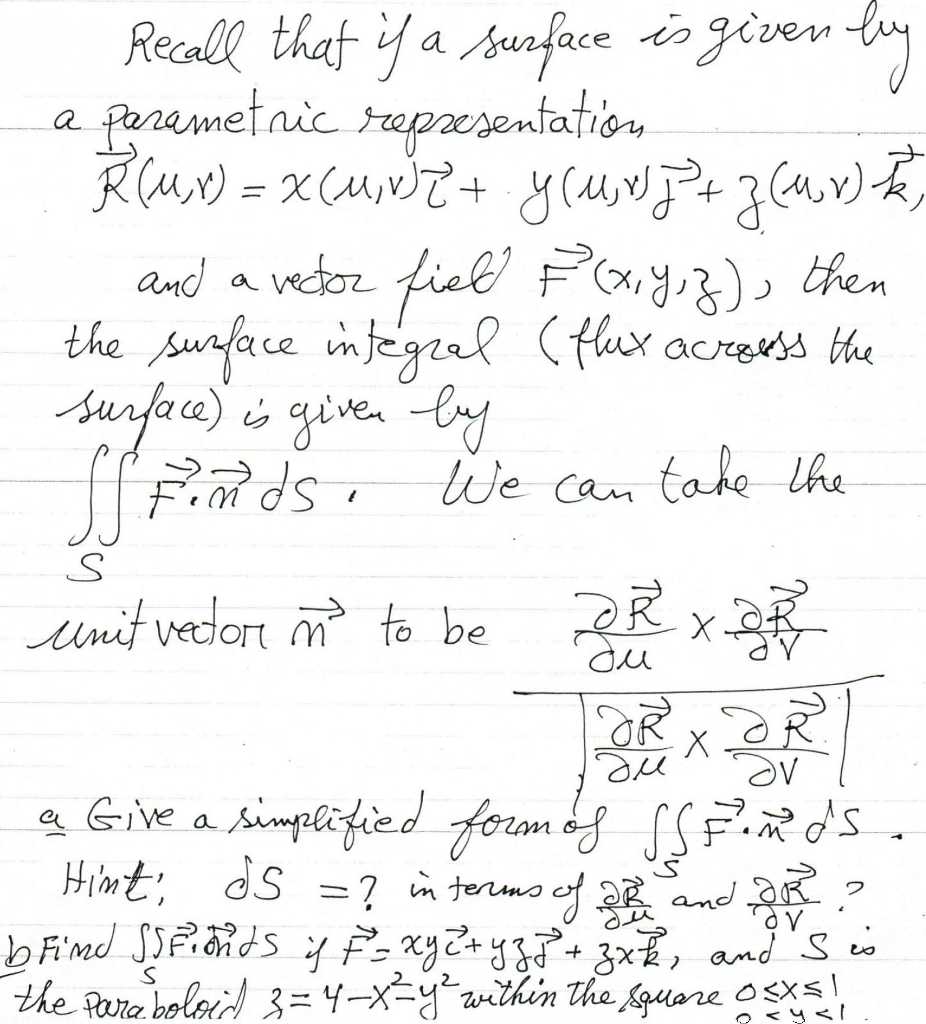 Recall that if a surface is given by
a parametric representation
R⃗(u,v) = x(u,v)i⃗ + y(u,v)j⃗ + z(u,v)k⃗,
and a vector field F⃗(x,y,z), then
the surface integral (flux across the
surface) is given by
∬_S F⃗·n⃗ dS. We can take the
unit vector n⃗ to be (∂R⃗/∂u × ∂R⃗/∂v) / |∂R⃗/∂u × ∂R⃗/∂v|
a Give a simplified form of ∬_S F⃗·n⃗ dS.
Hint: dS = ? in terms of ∂R⃗/∂u and ∂R⃗/∂v ?
b Find ∬_S F⃗·n⃗ dS if F⃗ = xyi⃗ + yzj⃗ + zxk⃗, and S is
the paraboloid z = 4-x²-y² within the square 0≤x≤1
0≤y≤1.